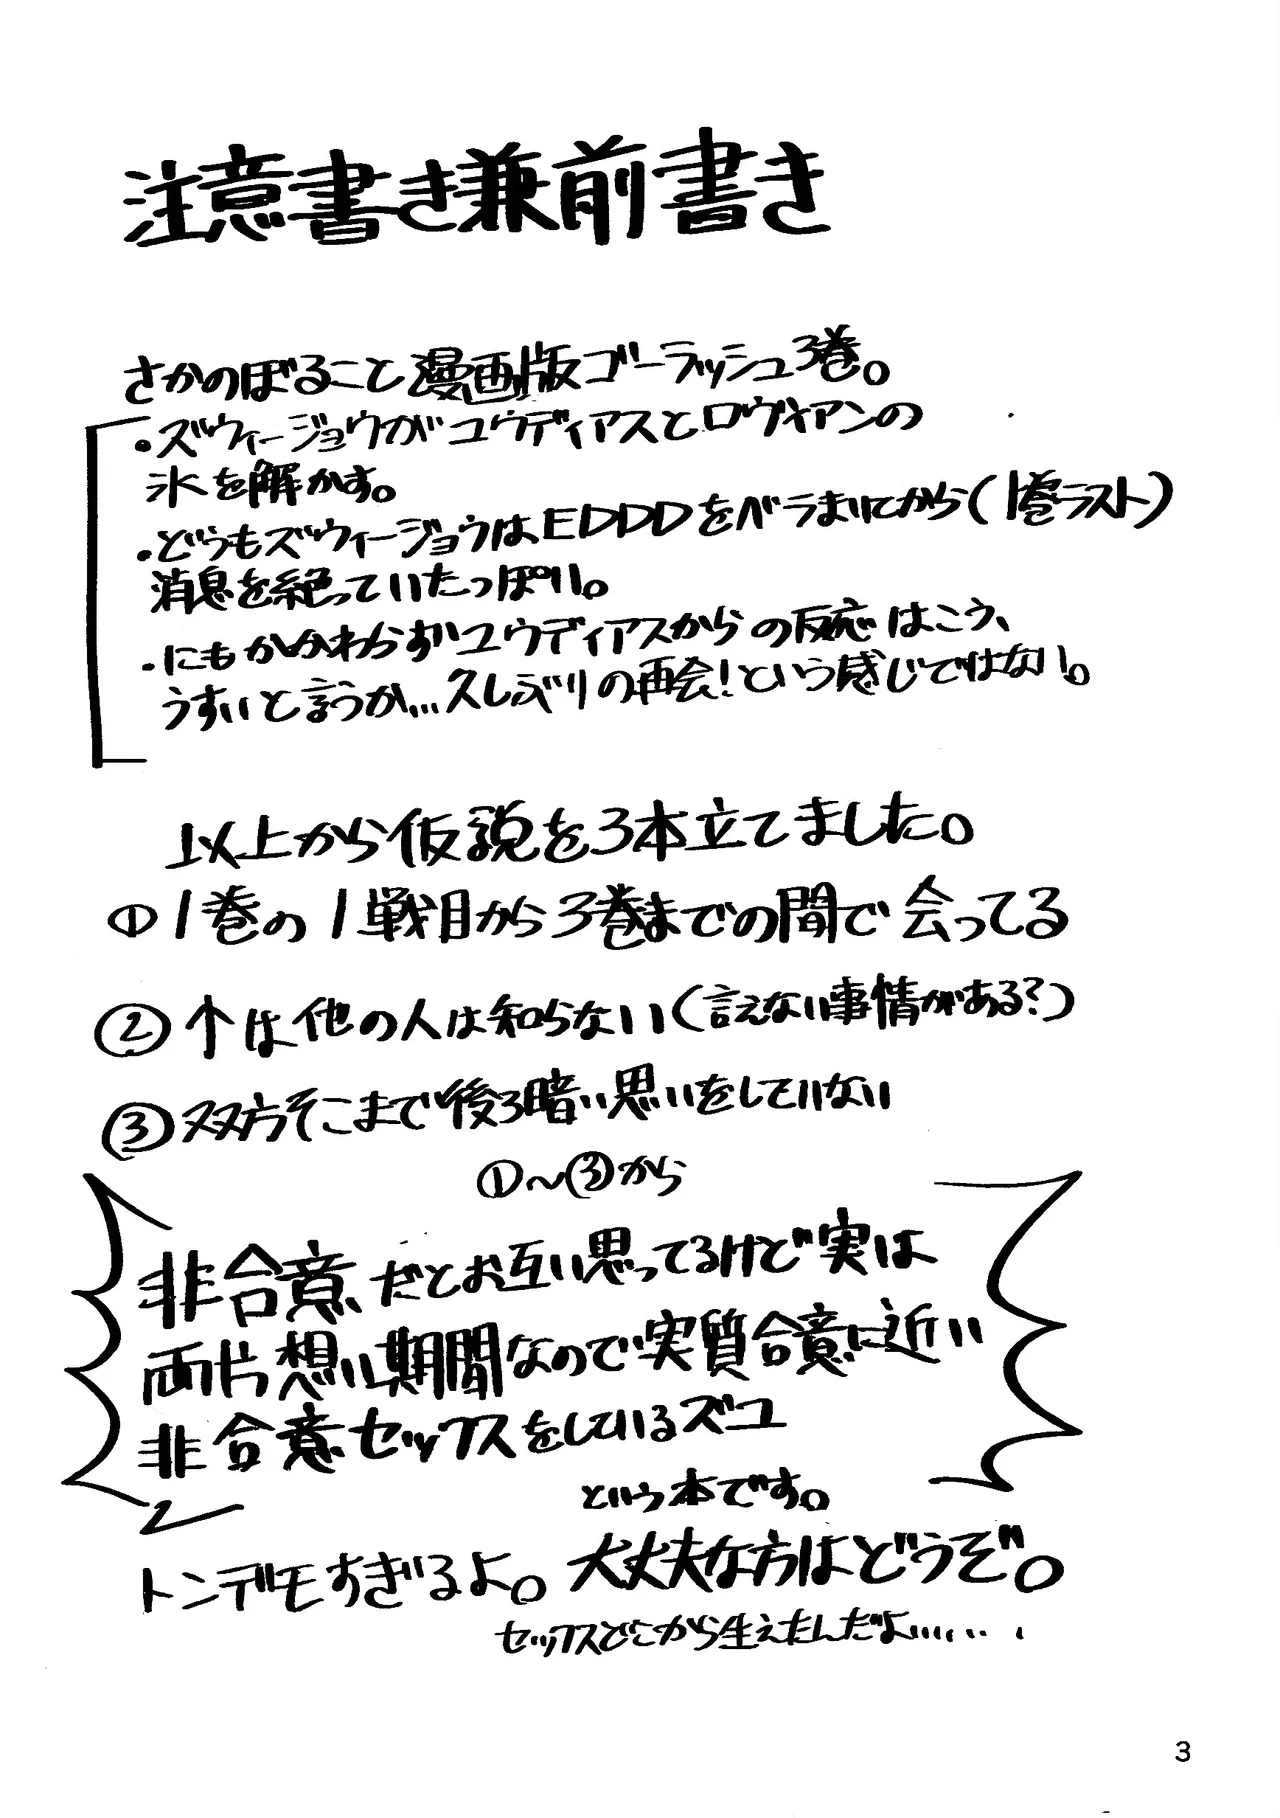 注意書き兼前書き
さかのぼること漫画版ゴーラッシュ3巻。
・ズウィージョウがユウディアスとロヴィアンの
氷を解かす。
・どうもズウィージョウはEDDDをベラまいてから(1巻ラスト)
消息を絶っていたっぽい。
・にもかかわらずユウディアスからの反応はこう、
うすいと言うか...久しぶりの再会!という感じではない。
以上から仮説を3本立てました。
①1巻の1戦目から3巻までの間で会ってる
②↑は他の人は知らない(言えない事情がある?)
③双方そこまで後ろ暗い思いをしていない
①〜③から
非合意だとお互い思ってるけど実は
両片想い期間なので実質合意に近い
非合意セックスをしているズユ
という本です。
トンデモすぎるよ。大丈夫な方はどうぞ。
セックスどこから生えたんだよ......
3